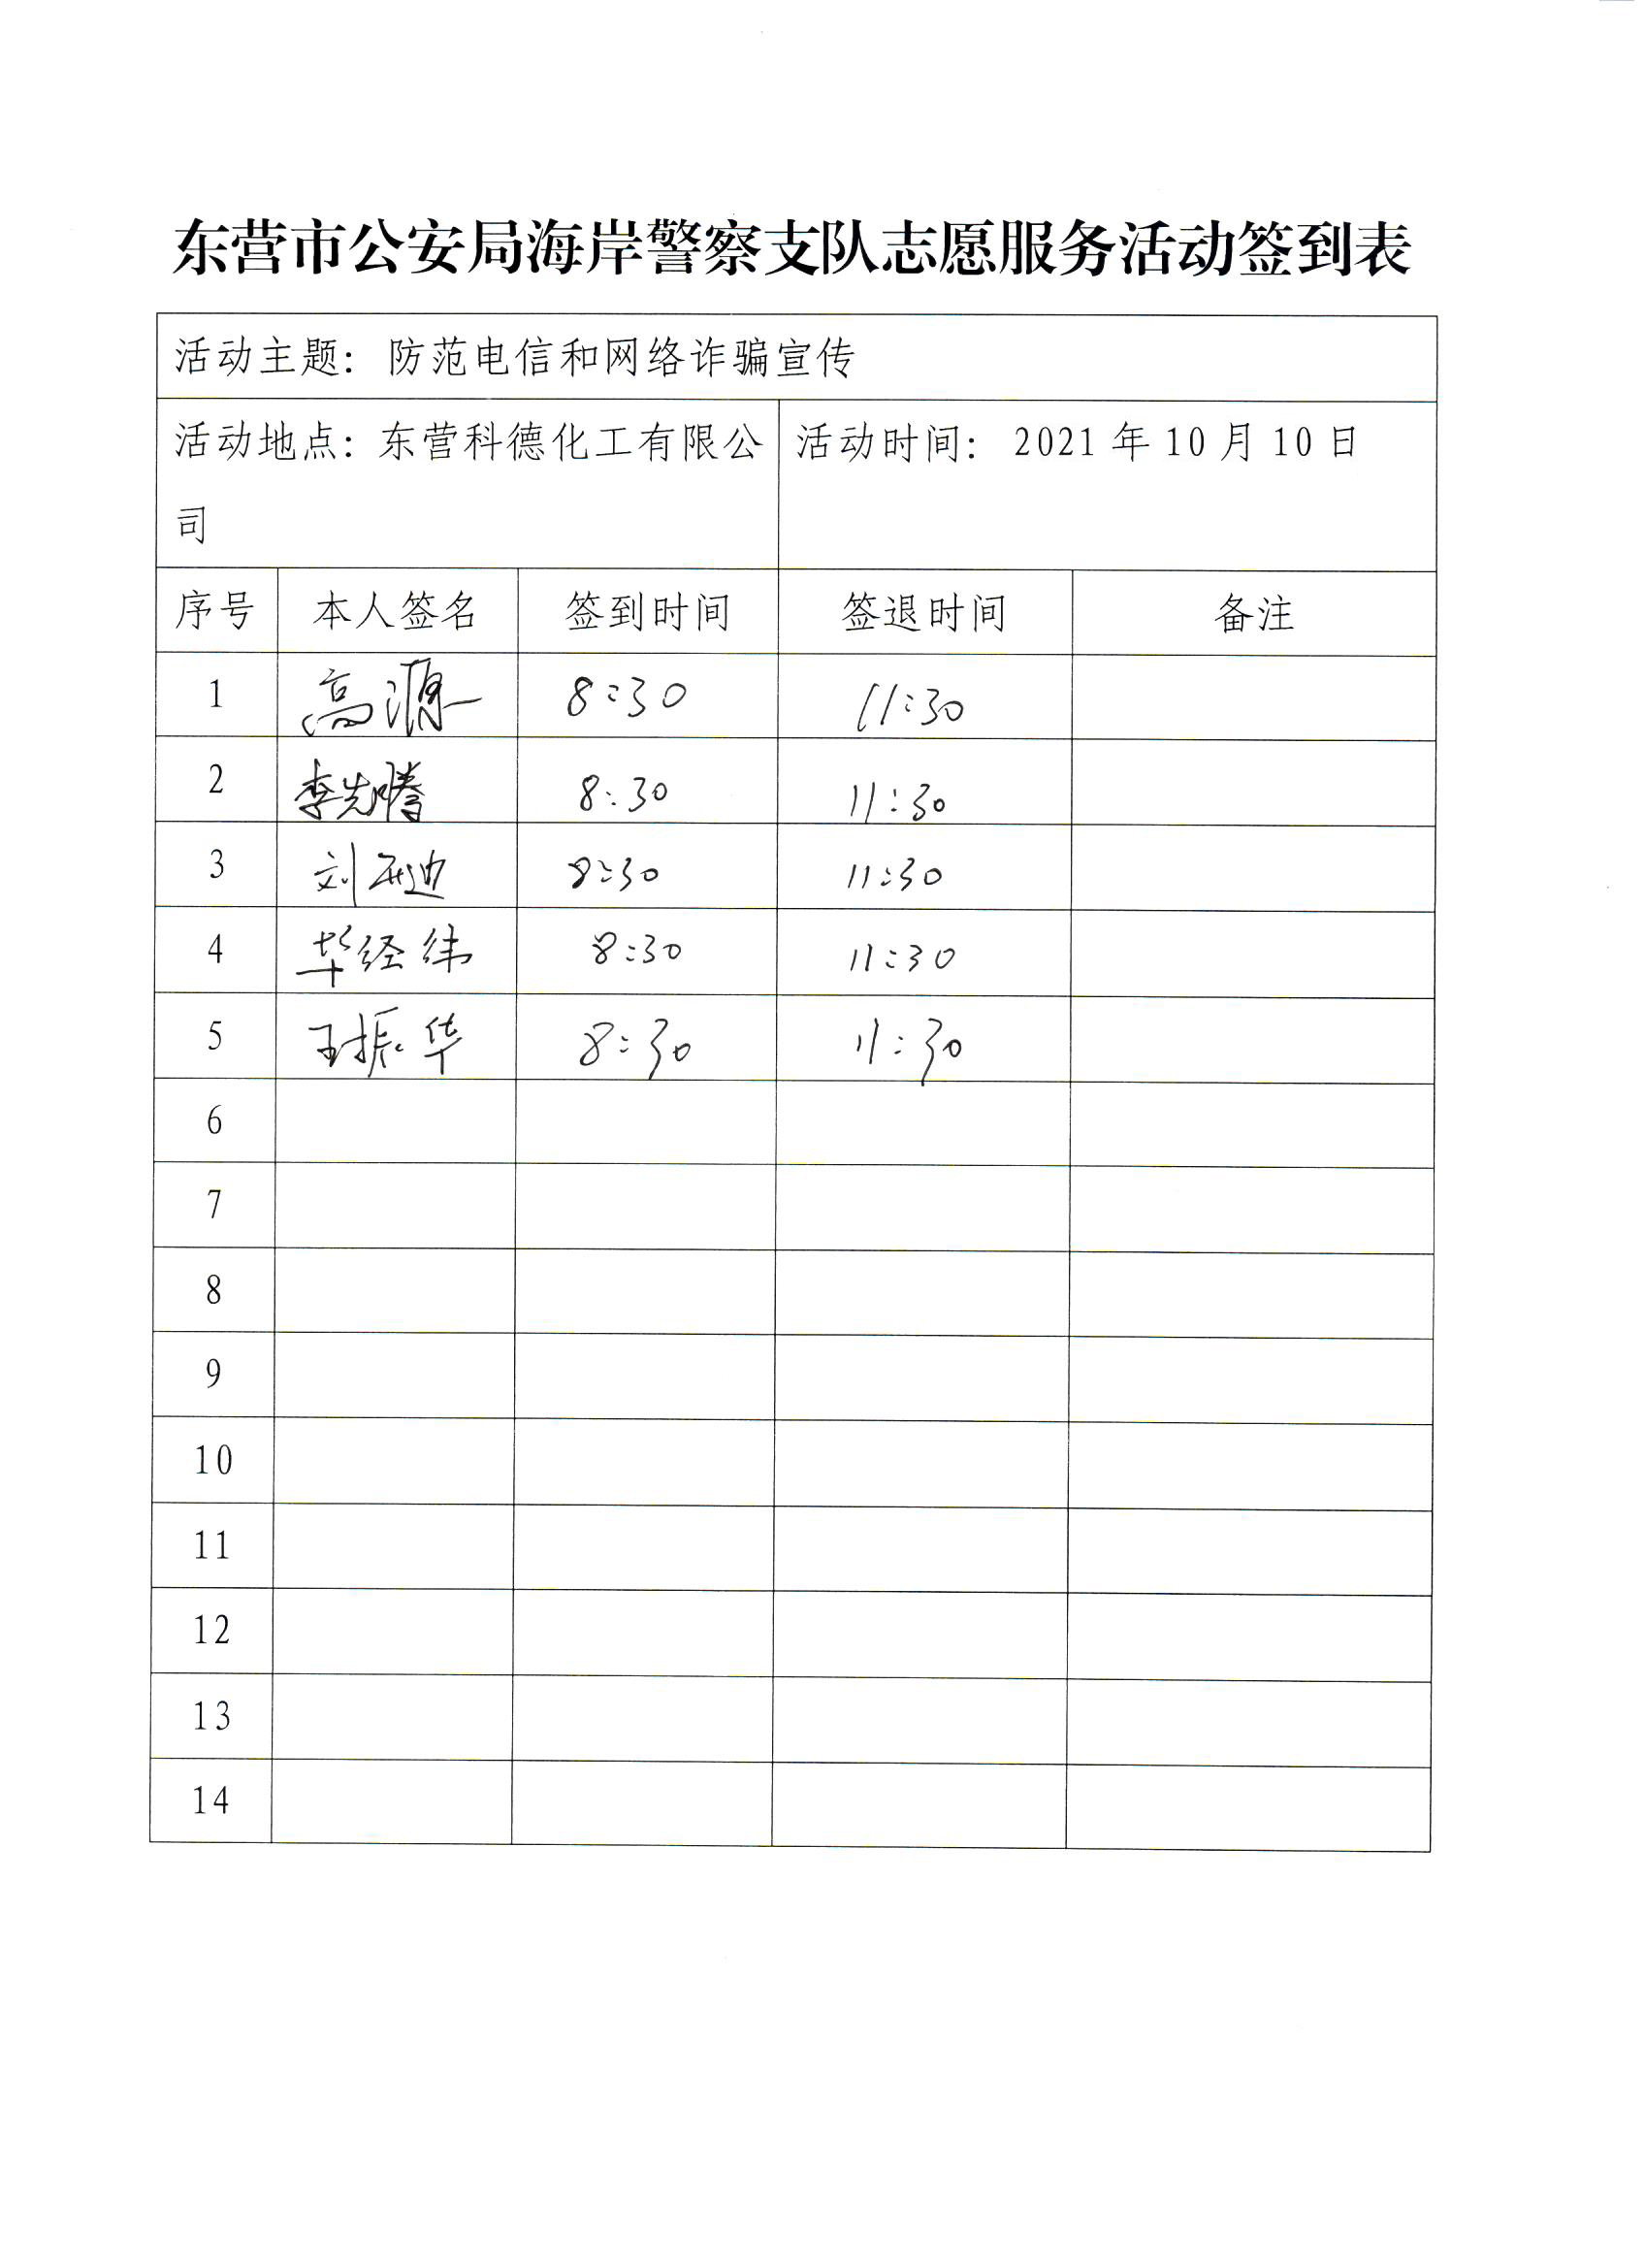 东营市公安局海岸警察支队志愿服务活动签到表
活动主题：防范电信和网络诈骗宣传
活动地点：东营科德化工有限公 活动时间：2021 年 10 月 10 日
司
序号 本人签名 签到时间 签退时间 备注
1 高源 8:30 11:30
2 李先腾 8:30 11:30
3 刘 8:30 11:30
4 华经纬 8:30 11:30
5 王振华 8:30 11:30
6
7
8
9
10
11
12
13
14